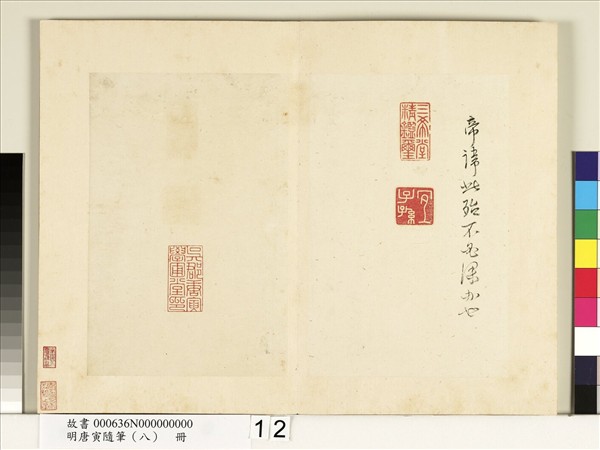 帝諱此殆不必深也
三希堂
精鑑璽
宜
子孫
吳郡唐寅
學圃堂印
故書 000636N000000000
明唐寅隨筆（八） 冊
1 2